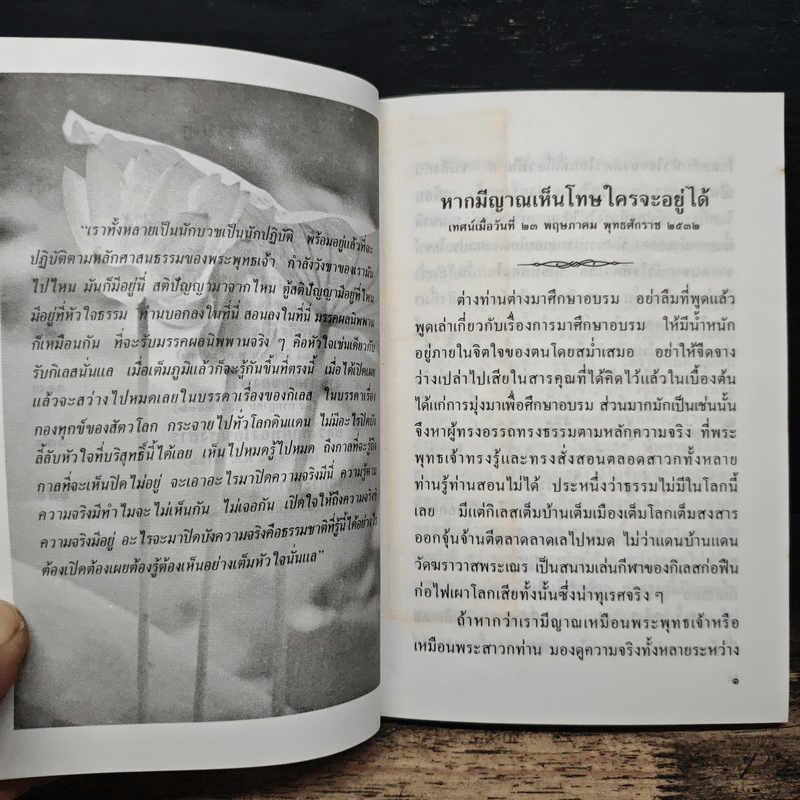 "เราทั้งหลายเป็นนักบวชเป็นนักปฏิบัติ พร้อมอยู่แล้วที่จะ
ปฏิบัติตามหลักศาสนธรรมของพระพุทธเจ้า กำลังวังชาของเรามัน
ไปไหน มันก็มีอยู่นี่ สติปัญญามาจากไหน ตู้สติปัญญามีอยู่ที่ไหน
มีอยู่ที่หัวใจธรรม ท่านบอกลงในที่นี่ สอนลงในที่นี่ มรรคผลนิพพาน
ก็เหมือนกัน ที่จะรับมรรคผลนิพพานจริง ๆ คือหัวใจเช่นเดียวกับ
รับกิเลสนั่นแล เมื่อเต็มภูมิแล้วก็จะรู้กันขึ้นที่ตรงนี้ เมื่อได้เปิดเผย
แล้วจะสว่างไปหมดเลยในบรรดาเรื่องของกิเลส ในบรรดาเรื่อง
กองทุกข์ของสัตว์โลก กระจายไปทั่วโลกดินแดน ไม่มีอะไรปิดบัง
ลี้ลับหัวใจที่บริสุทธิ์นี้ได้เลย เห็นไปหมดรู้ไปหมด ถึงกาลที่จะรู้ถึง
กาลที่จะเห็นปิดไม่อยู่ จะเอาอะไรมาปิดความจริงมีนี่ ความรู้ตาม
ความจริงมีทำไมจะไม่เห็นกัน ไม่เจอกัน เปิดใจให้ถึงความจริงซิ
ความจริงมีอยู่ อะไรจะมาปิดบังความจริงคือธรรมชาติที่รู้นี้ได้อย่างไร
ต้องเปิดต้องเผยต้องรู้ต้องเห็นอย่างเต็มหัวใจนั่นแล"
หากมีญาณเห็นโทษใครจะอยู่ได้
เทศน์เมื่อวันที่ ๒๓ พฤษภาคม พุทธศักราช ๒๕๓๒
ต่างท่านต่างมาศึกษาอบรม อย่าลืมที่พูดแล้ว
พูดเล่าเกี่ยวกับเรื่องการมาศึกษาอบรม ให้มีน้ำหนัก
อยู่ภายในจิตใจของตนโดยสม่ำเสมอ อย่าให้จืดจาง
ว่างเปล่าไปเสียในสารคุณที่ได้คิดไว้แล้วในเบื้องต้น
ได้แก่การมุ่งมาเพื่อศึกษาอบรม ส่วนมากมักเป็นเช่นนั้น
จึงหาผู้ทรงอรรถทรงธรรมตามหลักความจริง ที่พระ
พุทธเจ้าทรงรู้และทรงสั่งสอนตลอดสาวกทั้งหลาย
ท่านรู้ท่านสอนไม่ได้ ประหนึ่งว่าธรรมไม่มีในโลกนี้
เลย มีแต่กิเลสเต็มบ้านเต็มเมืองเต็มโลกเต็มสงสาร
ออกจุ้นจ้านตีตลาดลาดเลไปหมด ไม่ว่าแดนบ้านแดน
วัดฆราวาสพระเณร เป็นสนามเล่นกีฬาของกิเลสก่อฟืน
ก่อไฟเผาโลกเสียทั้งนั้นซึ่งน่าทุเรศจริง ๆ
ถ้าหากว่าเรามีญาณเหมือนพระพุทธเจ้าหรือ
เหมือนพระสาวกท่าน มองดูความจริงทั้งหลายระหว่าง
๑